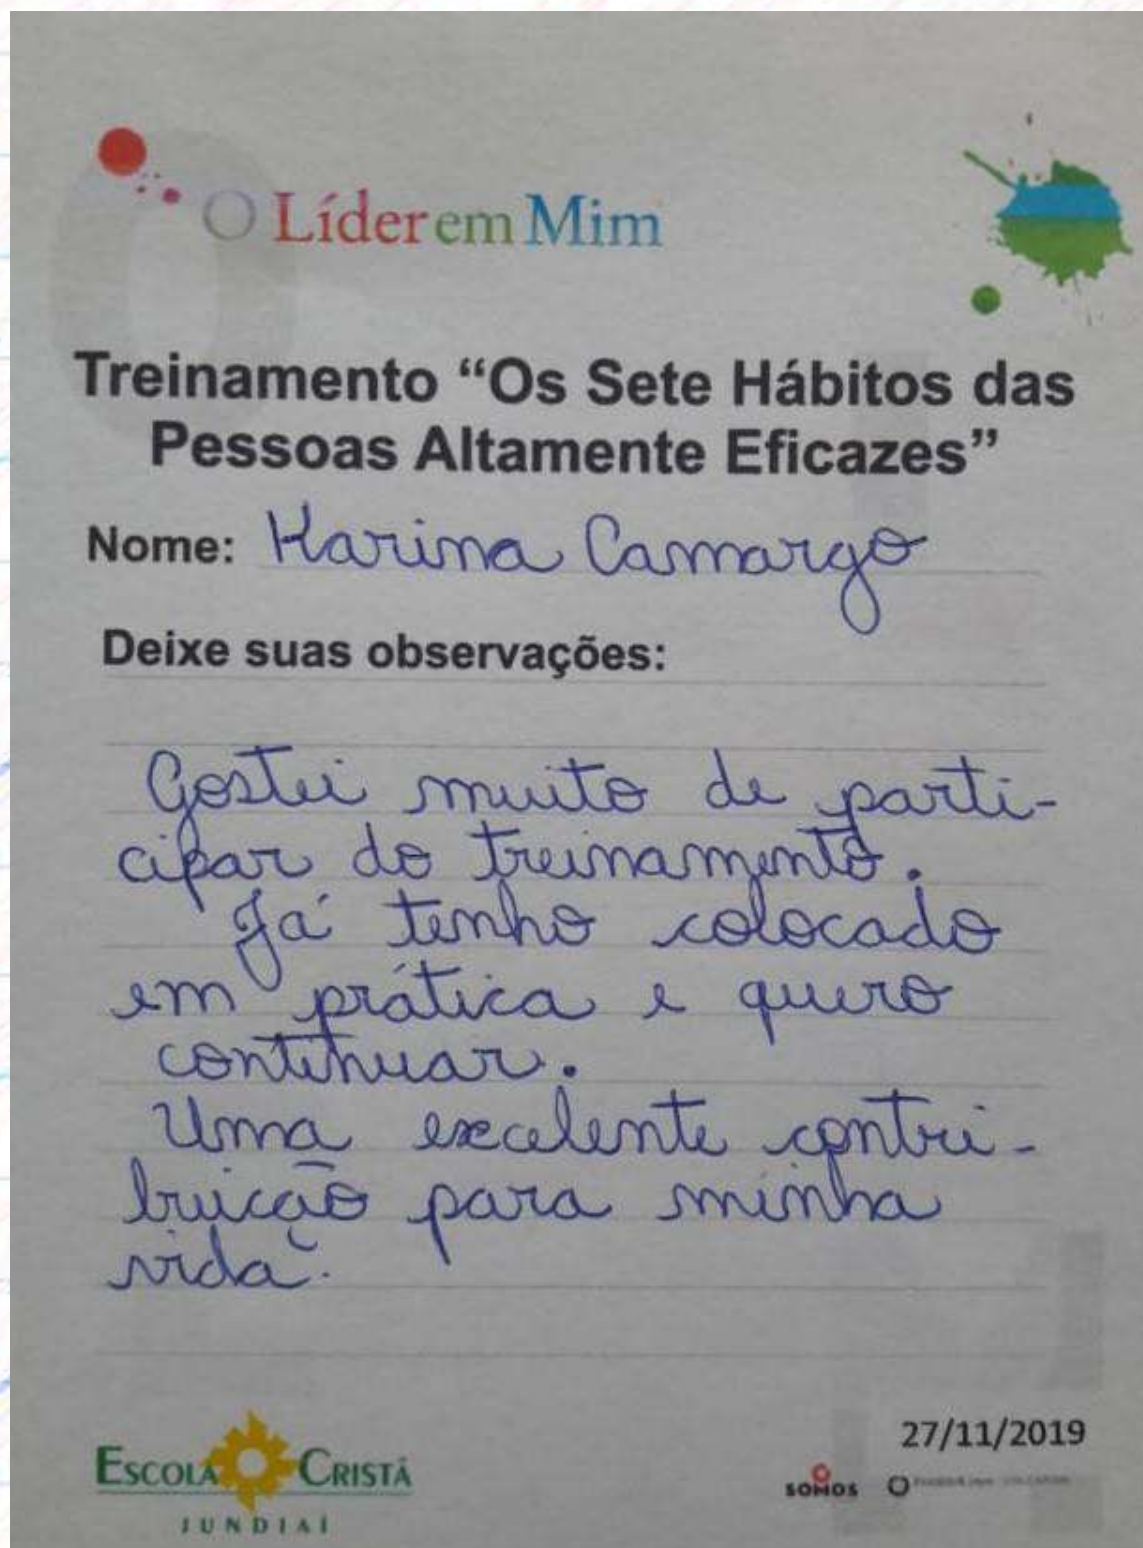 O Líder em Mim
Treinamento “Os Sete Hábitos das
Pessoas Altamente Eficazes”
Nome: Karina Camargo
Deixe suas observações:
Gostei muito de parti-
cipar do treinamento.
Já tenho colocado
em prática e quero
continuar.
Uma excelente contri-
buição para minha
vida.
27/11/2019
ESCOLA CRISTÃ
JUNDIAÍ
SOMOS